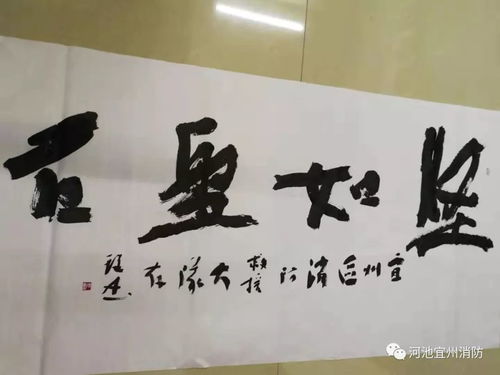 坚如磐石
宜州区消防救援大队存
河池宜州消防